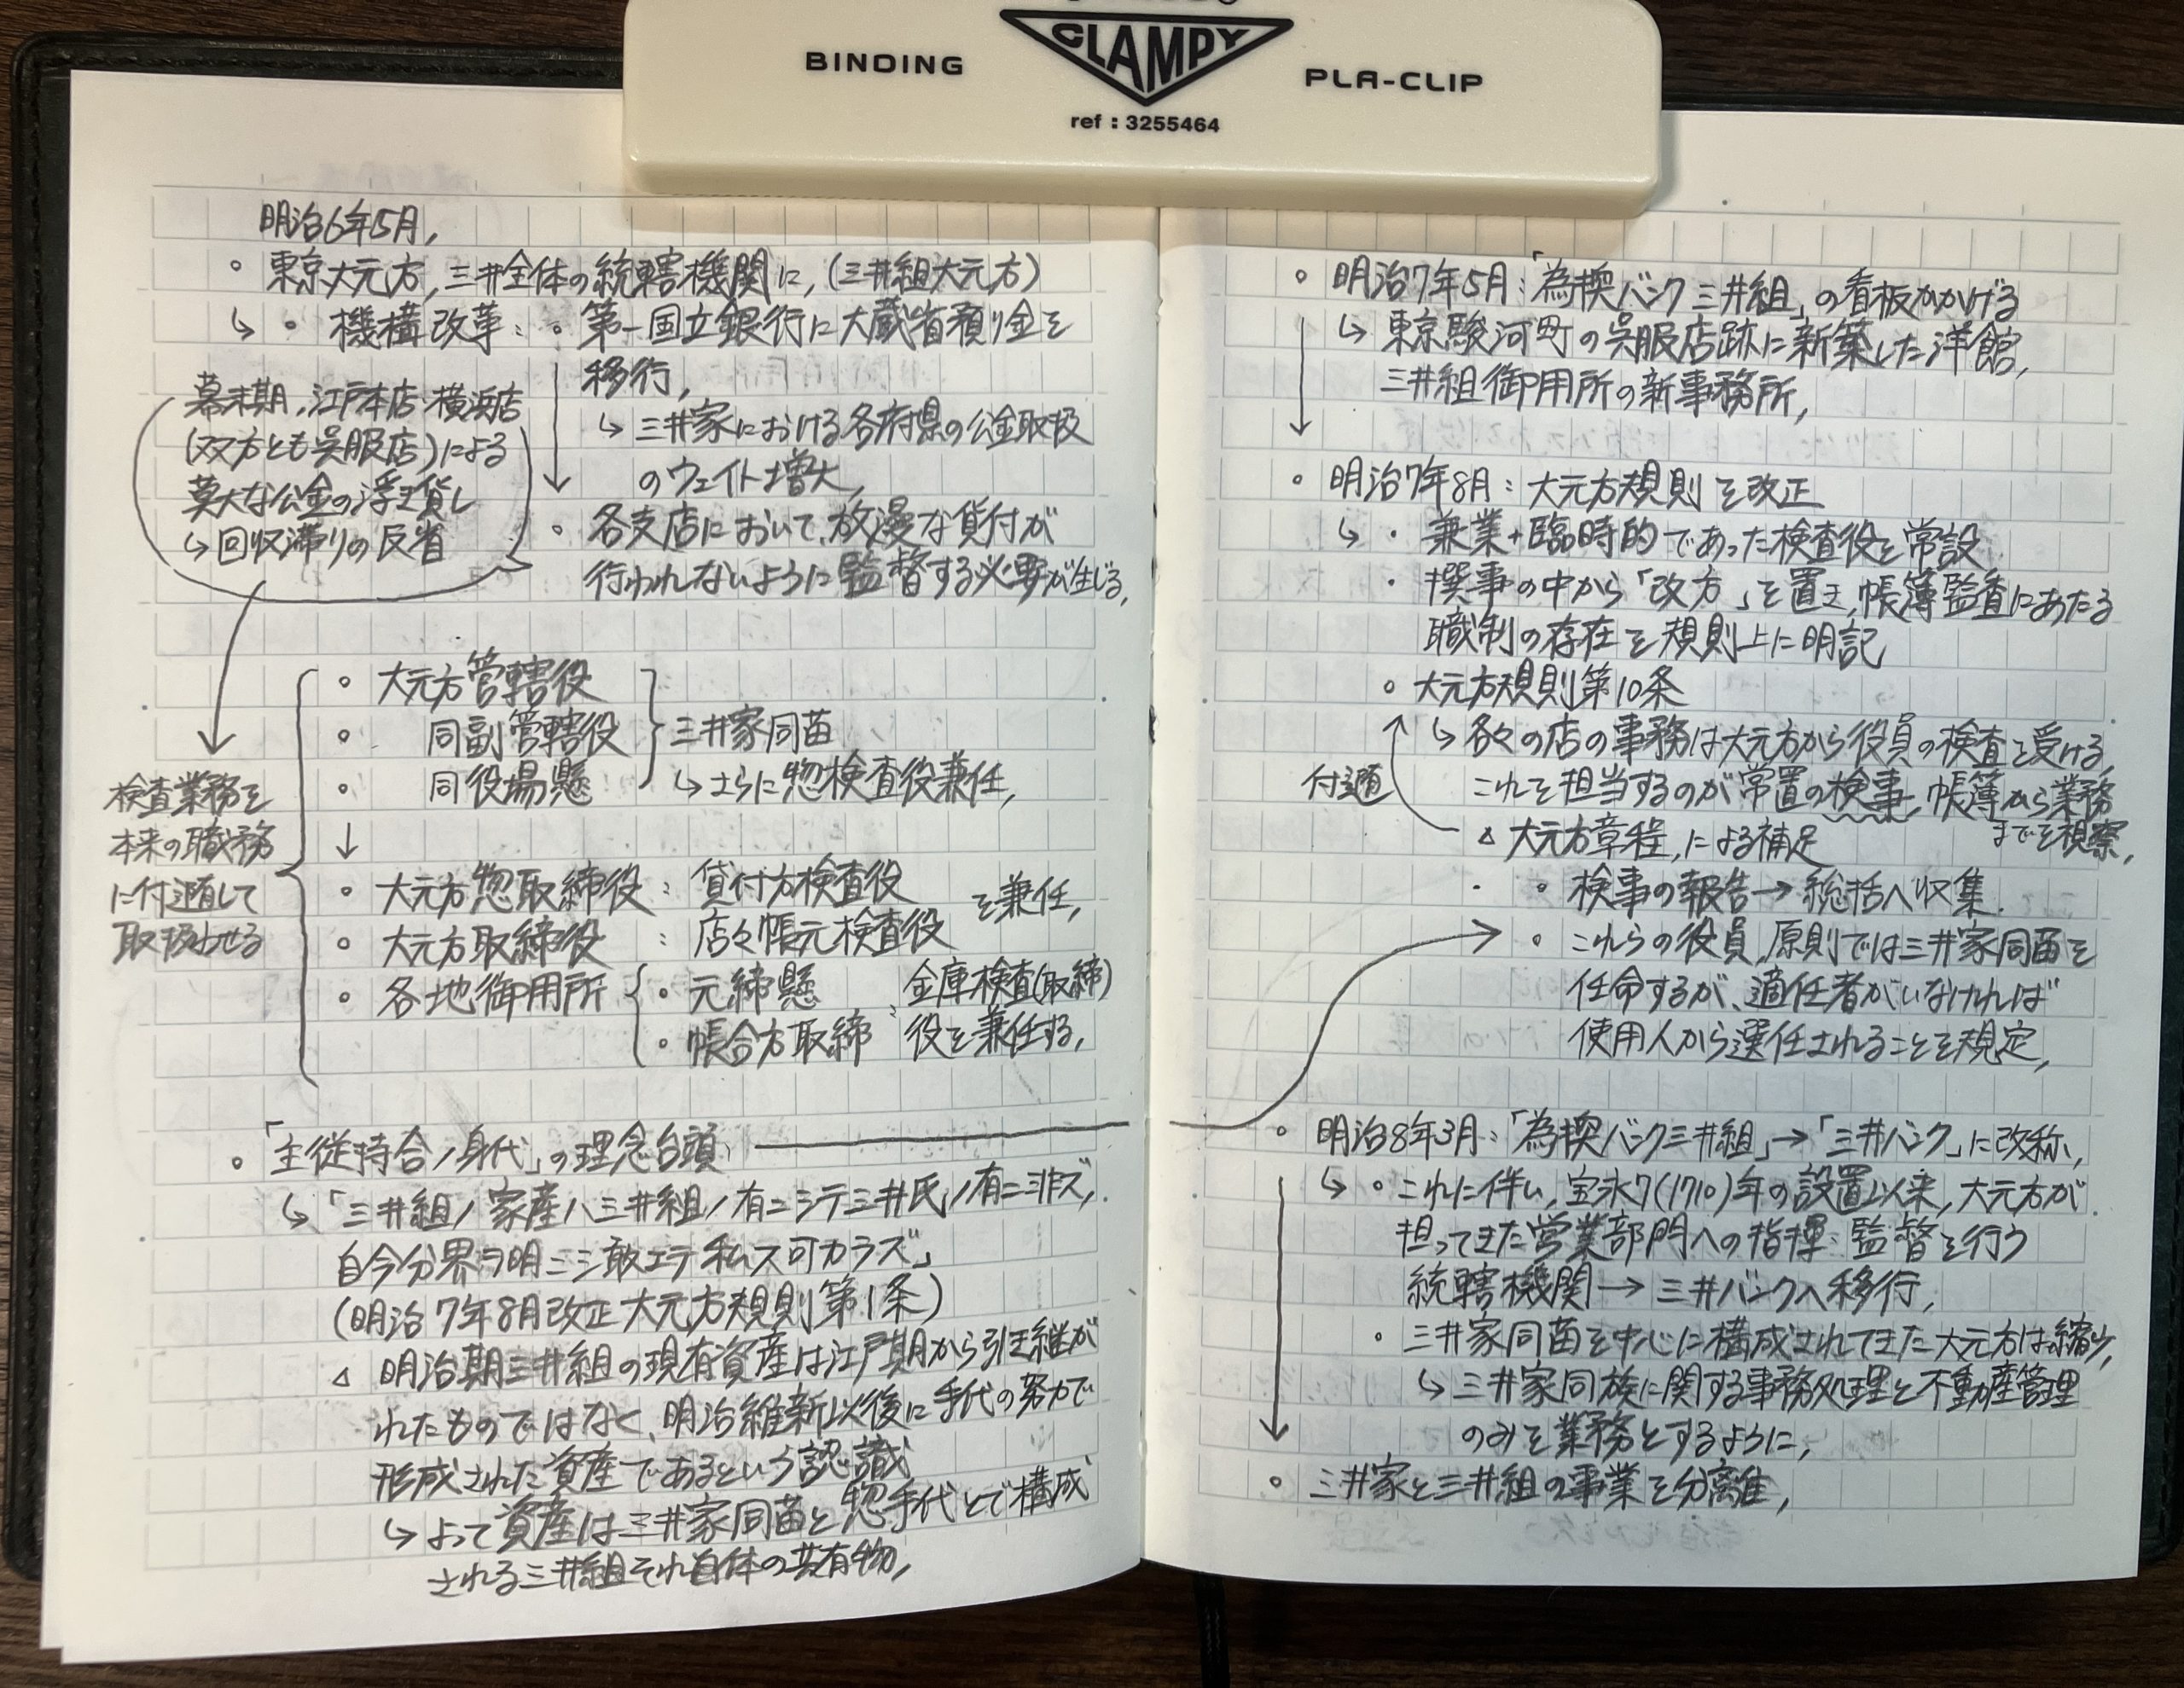 CLAMPY
BINDING
PLA-CLIP
ref : 3255464
明治6年5月,
◦ 東京大元方, 三井全体の統轄機関に, (三井組大元方)
↳ ・ 機構改革: ◦ 第一国立銀行に大蔵省預り金を
移行,
↳ 三井家における各府県の公金取扱
のウェイト増大,
◦ 各支店において、放漫な貸付が
行われないように監督する必要が生じる,
幕末期, 江戸本店・横浜店
(双方とも呉服店)による
莫大な公金の浮貸し
↳ 回収滞りの反省
検査業務を
本来の職務
に付随して
取扱わせる
◦ 大元方管轄役
◦ 同副管轄役
◦ 同役場懸
三井家同苗
↳ さらに惣検査役兼任,
↓
◦ 大元方惣取締役 : 貸付方検査役
◦ 大元方取締役 : 店々帳元検査役
を兼任,
◦ 各地御用所 { ・ 元締懸
・ 帳合方取締
: 金庫検査(取締)
役を兼任する,
◦ 「主従持合ノ身代」の理念台頭
↳ 「三井組ノ家産ハ三井組ノ有ニシテ三井氏ノ有ニ非ズ,
自今分界ヲ明ニシ敢エテ私ス可カラズ」
(明治7年8月改正大元方規則第1条)
△ 明治期三井組の現有資産は江戸期から引き継が
れたものではなく、明治維新以後に手代の努力で
形成された資産であるという認識,
↳ よって資産は三井家同苗と惣手代とで構成
される三井組それ自体の共有物,
◦ 明治7年5月:「為換バンク三井組」の看板かかげる
↳ 東京駿河町の呉服店跡に新築した洋館,
三井組御用所の新事務所,
◦ 明治7年8月: 大元方規則を改正
↳ ・ 兼業+臨時的であった検査役を常設
・ 撰事の中から「改方」を置き, 帳簿監査にあたる
職制の存在を規則上に明記
◦ 大元方規則第10条
↳ 各々の店の事務は大元方から役員の検査を受ける,
これを担当するのが常置の検事, 帳簿から業務
までを視察,
付随
△ 大元方章程, による補足
◦ 検事の報告→総括へ収集.
◦ これらの役員, 原則では三井家同苗を
任命するが、適任者がいなければ
使用人から選任されることを規定,
◦ 明治8年3月:「為換バンク三井組」→「三井バンク」に改称,
↳ ◦ これに伴い, 宝永7(1710)年の設置以来, 大元方が
担ってきた営業部門への指揮・監督を行う
統轄機関→三井バンクへ移行,
・ 三井家同苗を中心に構成されてきた大元方は縮少,
↳ 三井家同族に関する事務処理と不動産管理
のみを業務とするように,
◦ 三井家と三井組の事業を分離,